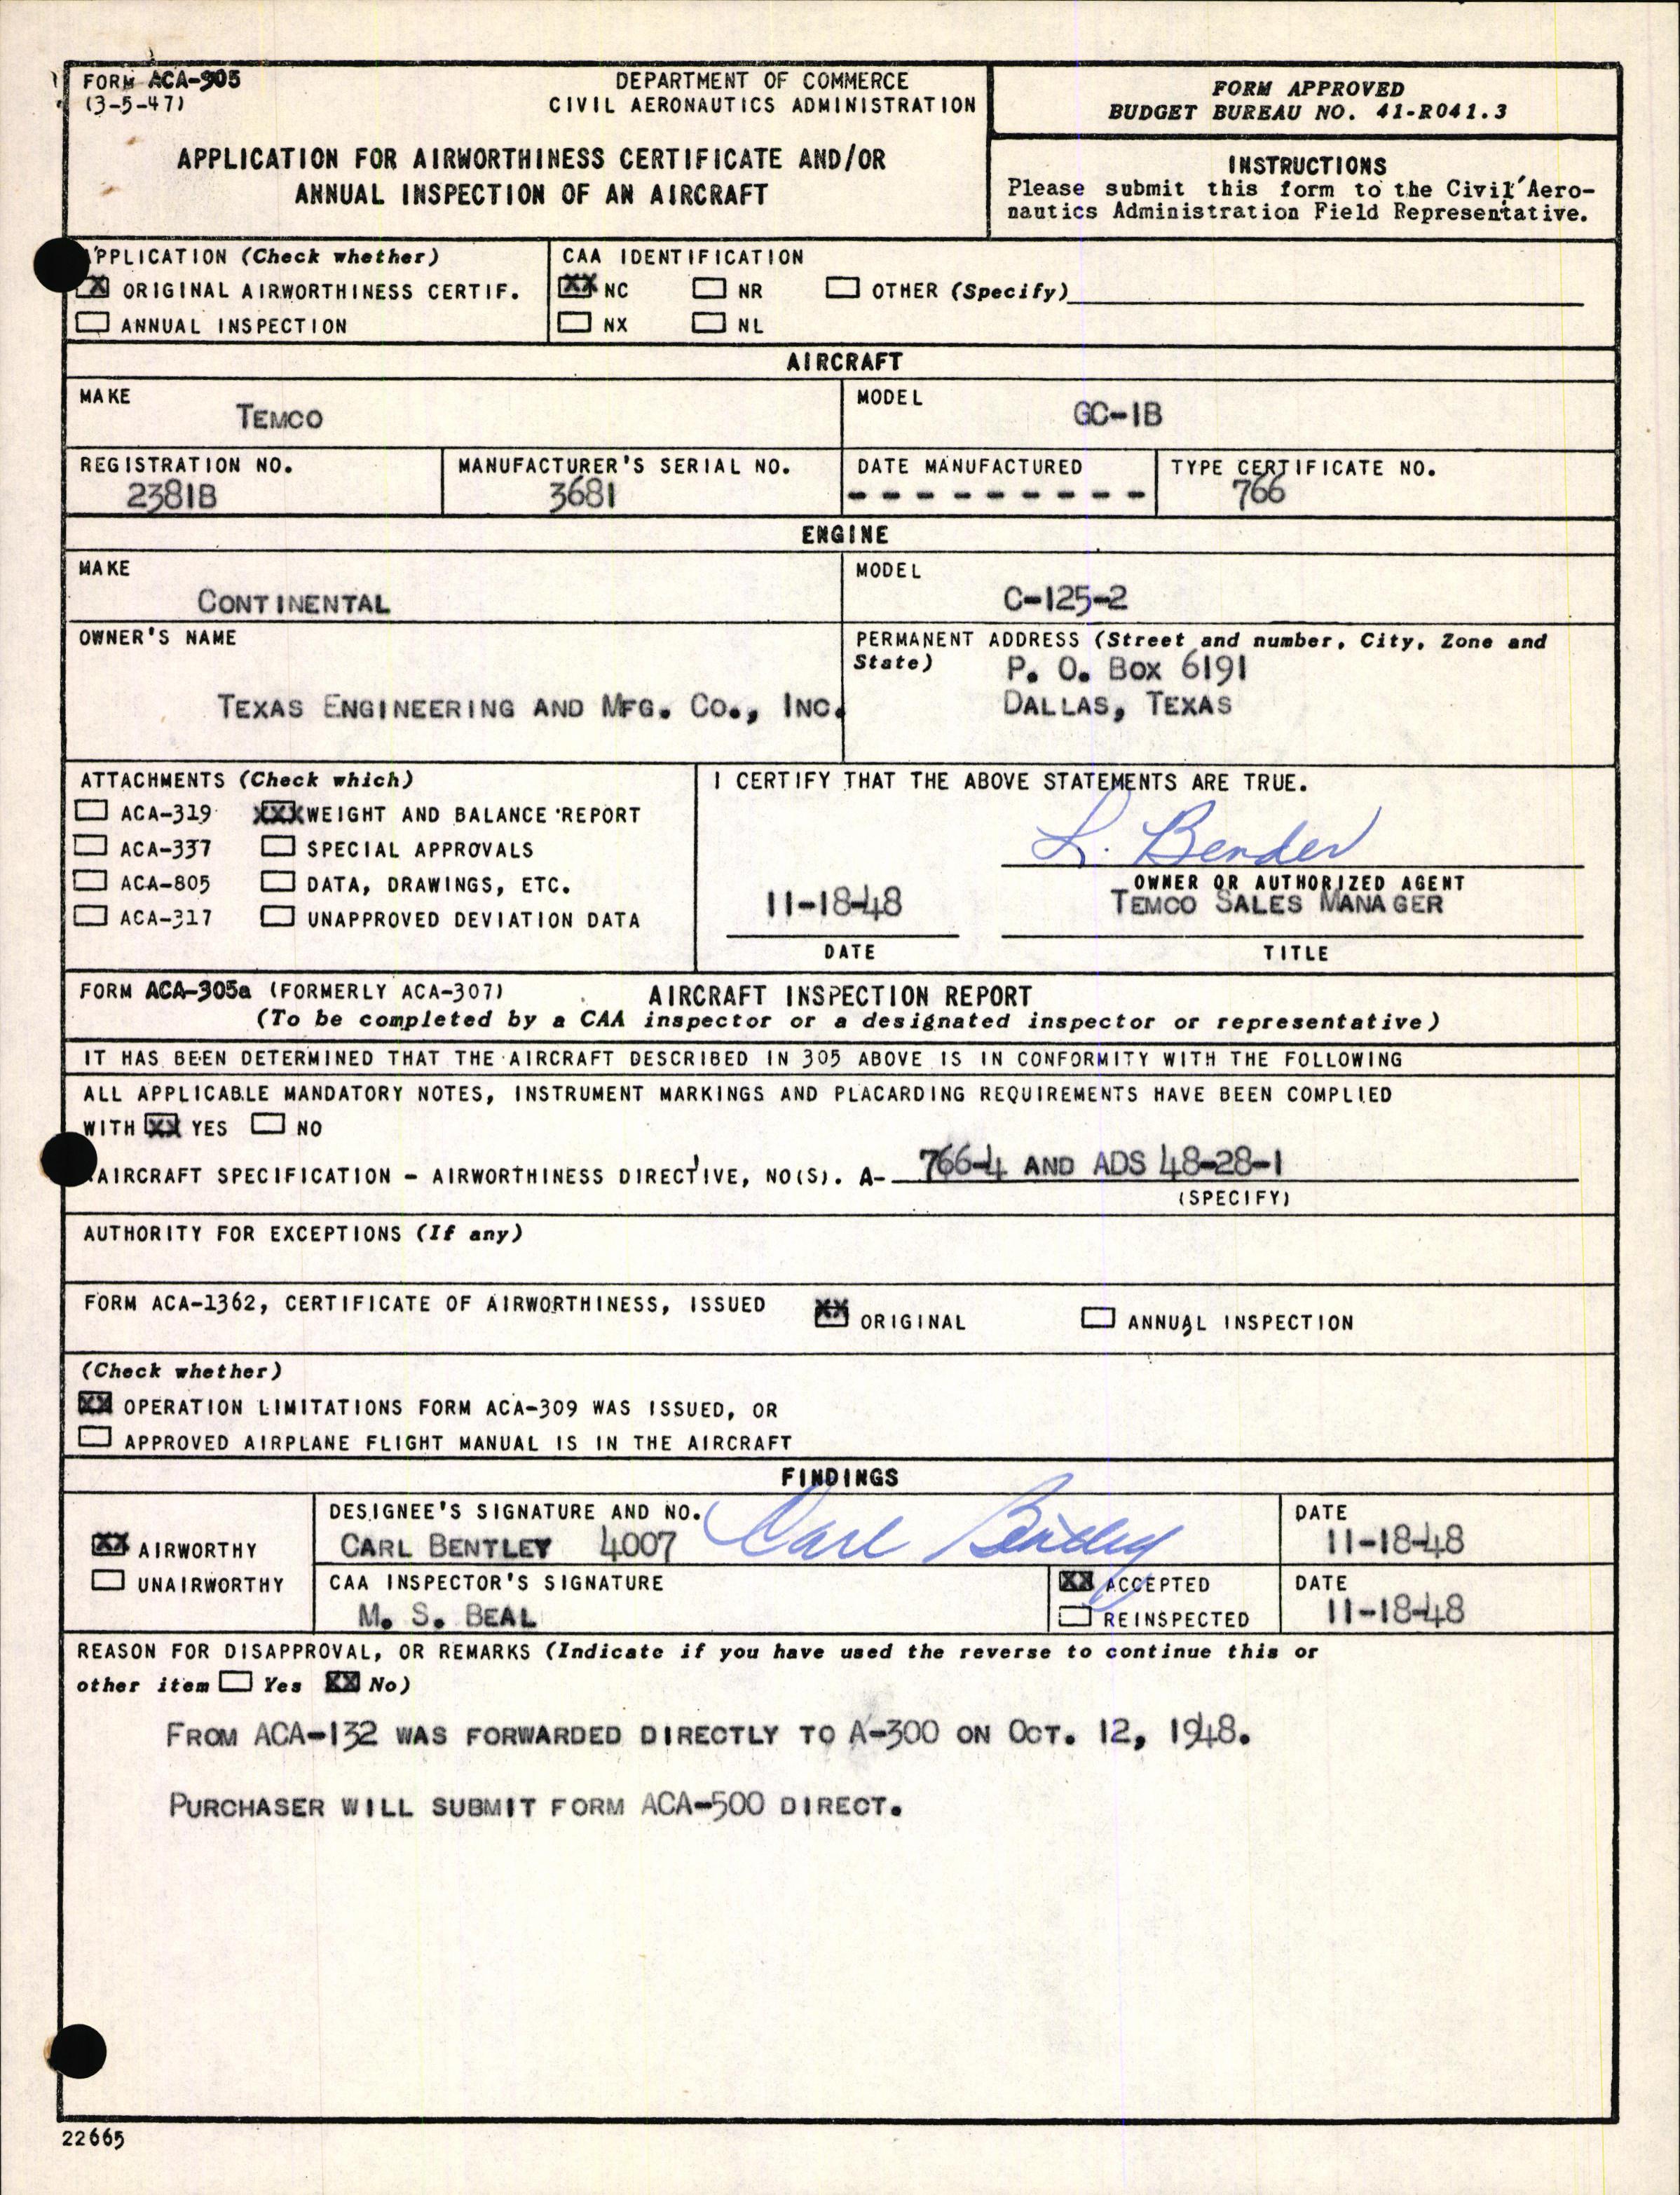 FORM ACA-305
(3-5-47)
DEPARTMENT OF COMMERCE
CIVIL AERONAUTICS ADMINISTRATION
APPLICATION FOR AIRWORTHINESS CERTIFICATE AND/OR
ANNUAL INSPECTION OF AN AIRCRAFT
FORM APPROVED
BUDGET BUREAU NO. 41-R041.3
INSTRUCTIONS
Please submit this form to the Civil Aero-
nautics Administration Field Representative.
APPLICATION (Check whether)
X ORIGINAL AIRWORTHINESS CERTIF.
ANNUAL INSPECTION
CAA IDENTIFICATION
XX NC NR OTHER (Specify)
NX NL
AIRCRAFT
MAKE
TEMCO
MODEL
GC-1B
REGISTRATION NO.
2381B
MANUFACTURER'S SERIAL NO.
3681
DATE MANUFACTURED
- - - - - - - - -
TYPE CERTIFICATE NO.
766
ENGINE
MAKE
CONTINENTAL
MODEL
C-125-2
OWNER'S NAME
TEXAS ENGINEERING AND MFG. CO., INC.
PERMANENT ADDRESS (Street and number, City, Zone and
State) P. O. BOX 6191
DALLAS, TEXAS
ATTACHMENTS (Check which)
ACA-319 XXX WEIGHT AND BALANCE REPORT
ACA-337 SPECIAL APPROVALS
ACA-805 DATA, DRAWINGS, ETC.
ACA-317 UNAPPROVED DEVIATION DATA
I CERTIFY THAT THE ABOVE STATEMENTS ARE TRUE.
L. Bender
OWNER OR AUTHORIZED AGENT
11-18-48 TEMCO SALES MANAGER
DATE TITLE
FORM ACA-305a (FORMERLY ACA-307) AIRCRAFT INSPECTION REPORT
(To be completed by a CAA inspector or a designated inspector or representative)
IT HAS BEEN DETERMINED THAT THE AIRCRAFT DESCRIBED IN 305 ABOVE IS IN CONFORMITY WITH THE FOLLOWING
ALL APPLICABLE MANDATORY NOTES, INSTRUMENT MARKINGS AND PLACARDING REQUIREMENTS HAVE BEEN COMPLIED
WITH XX YES NO
AIRCRAFT SPECIFICATION - AIRWORTHINESS DIRECTIVE, NO(S). A- 766-4 AND ADS 48-28-1
(SPECIFY)
AUTHORITY FOR EXCEPTIONS (If any)
FORM ACA-1362, CERTIFICATE OF AIRWORTHINESS, ISSUED XX ORIGINAL ANNUAL INSPECTION
(Check whether)
XX OPERATION LIMITATIONS FORM ACA-309 WAS ISSUED, OR
APPROVED AIRPLANE FLIGHT MANUAL IS IN THE AIRCRAFT
FINDINGS
XX AIRWORTHY
UNAIRWORTHY
DESIGNEE'S SIGNATURE AND NO.
CARL BENTLEY 4007 Carl Bentley
DATE
11-18-48
CAA INSPECTOR'S SIGNATURE
M. S. BEAL
XX ACCEPTED
REINSPECTED
DATE
11-18-48
REASON FOR DISAPPROVAL, OR REMARKS (Indicate if you have used the reverse to continue this or
other item Yes XX No)
FROM ACA-132 WAS FORWARDED DIRECTLY TO A-300 ON OCT. 12, 1948.
PURCHASER WILL SUBMIT FORM ACA-500 DIRECT.
22665